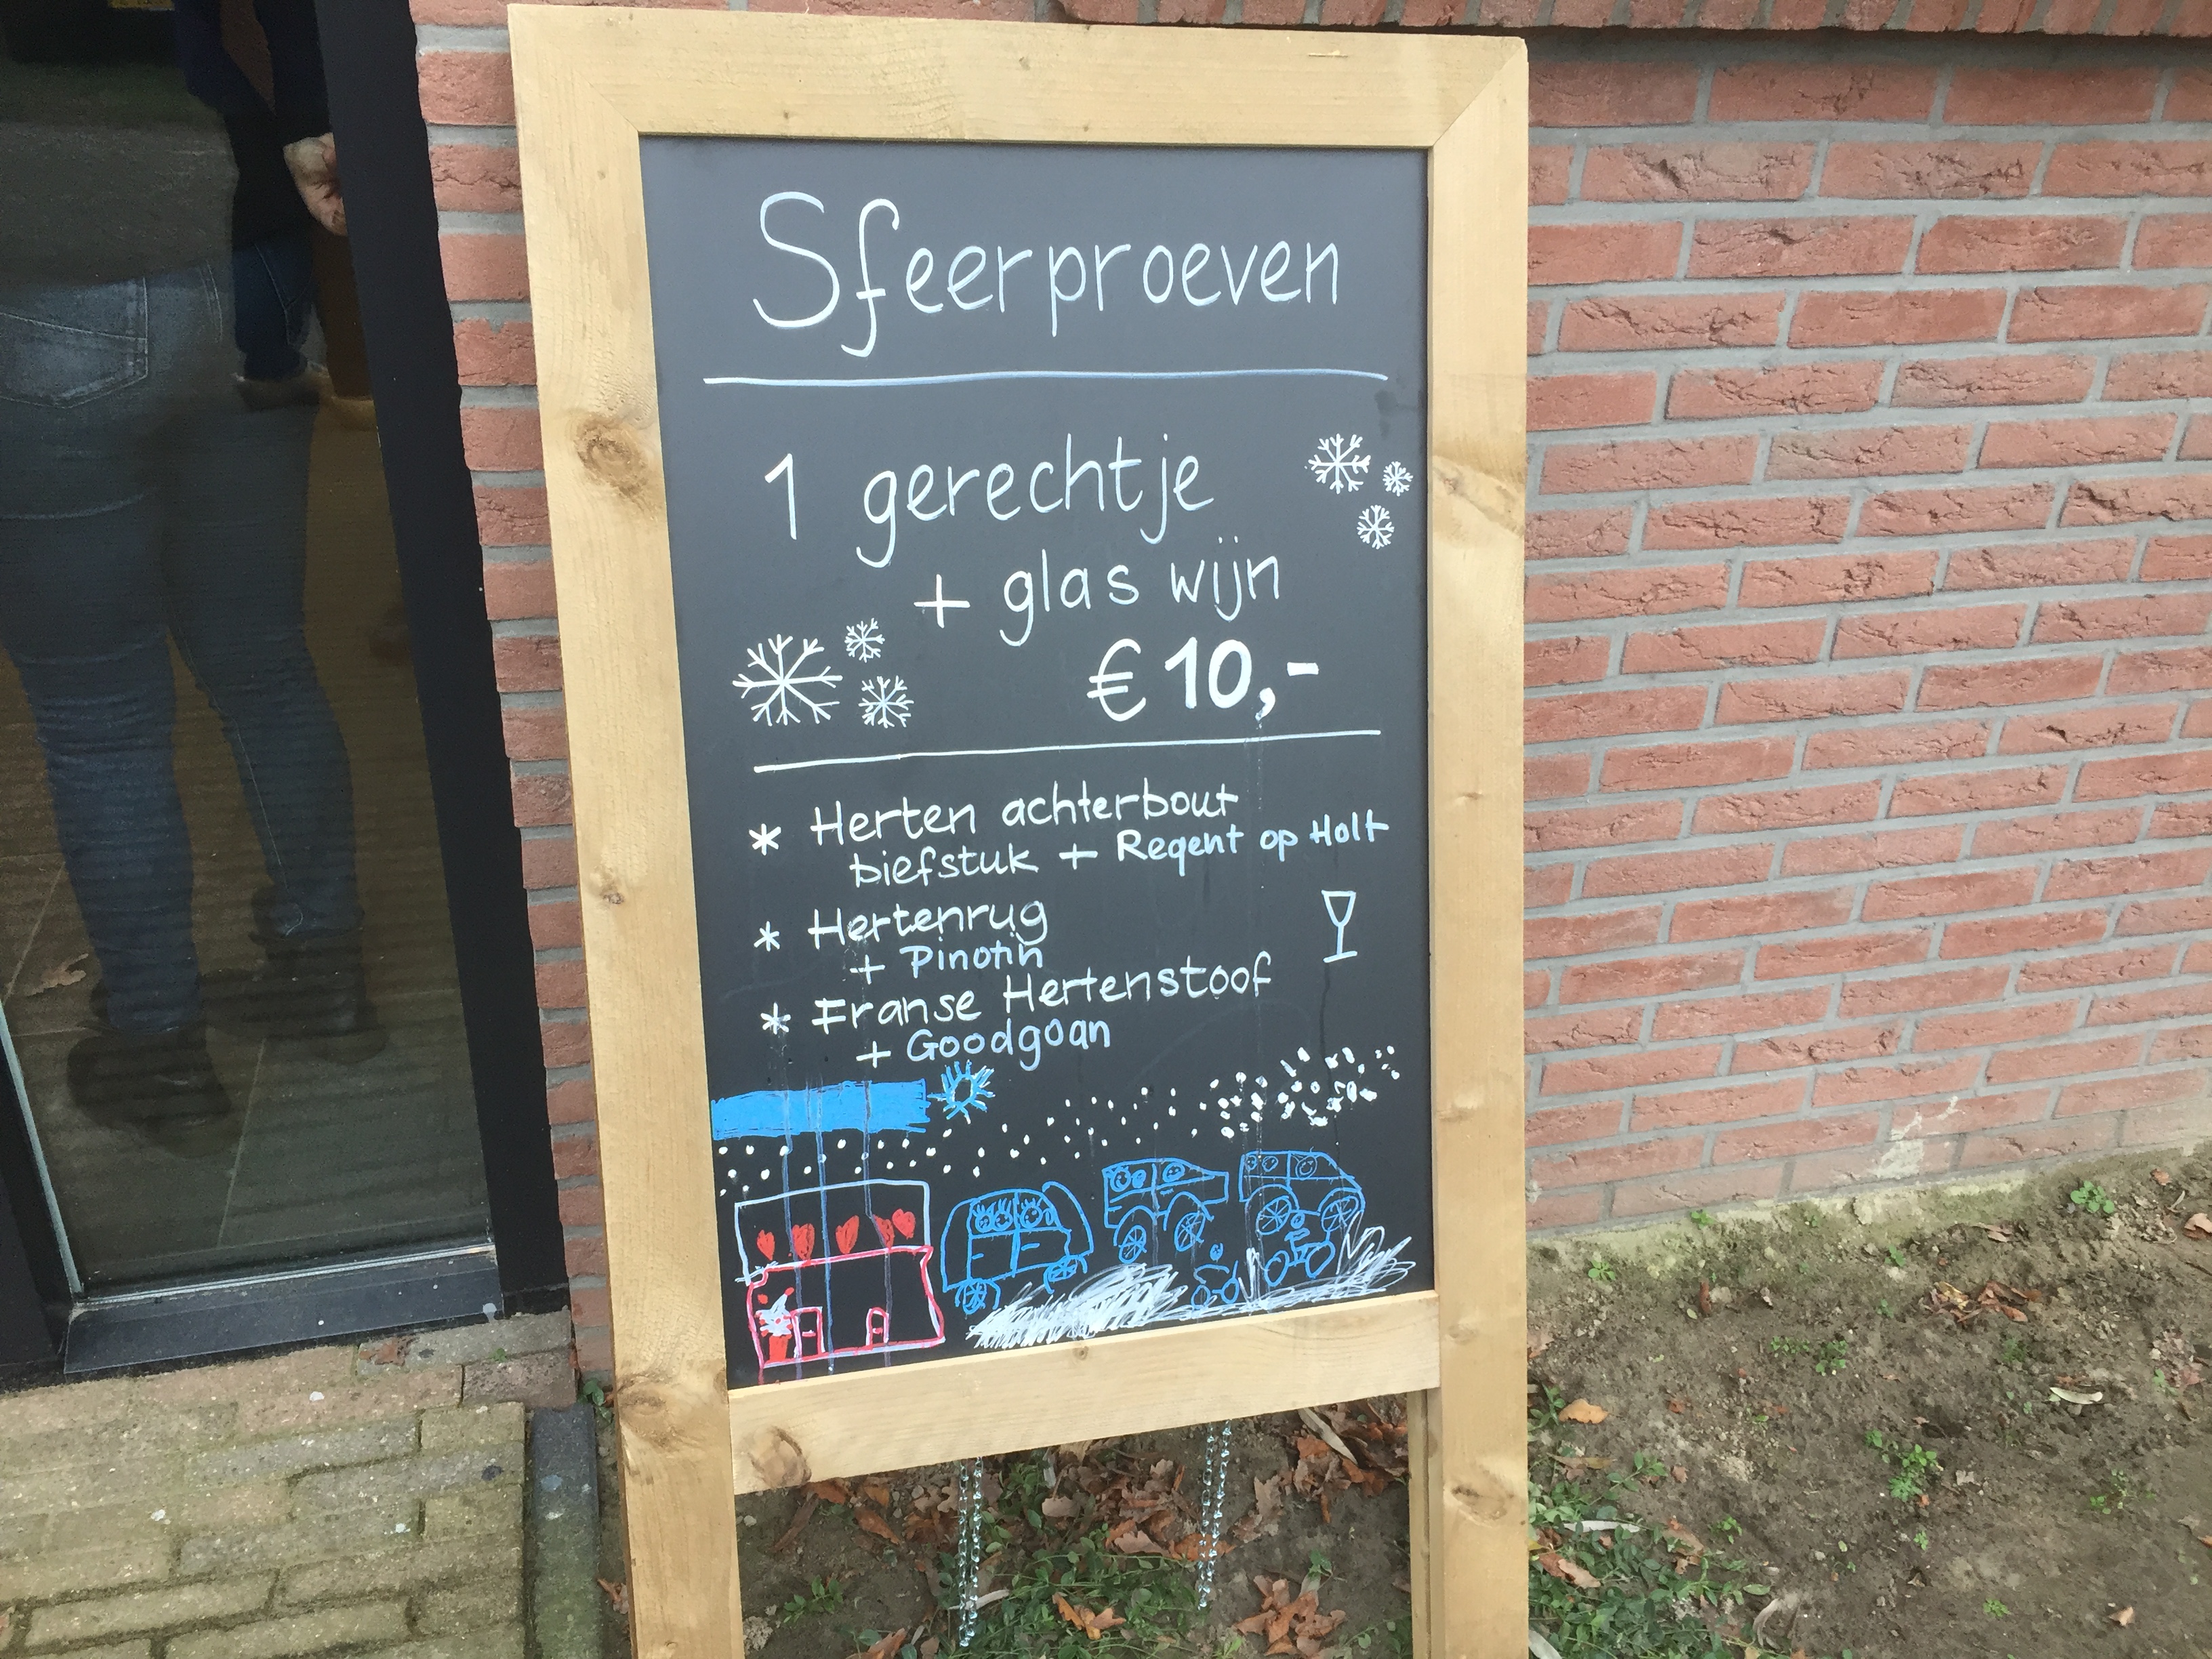 Sfeerproeven
1 gerechtje
+ glas wijn
€ 10,-
* Herten achterbout
biefstuk + Regent op Holt
* Hertenrug
+ Pinotin
* Franse Hertenstoof
+ Goodgoan